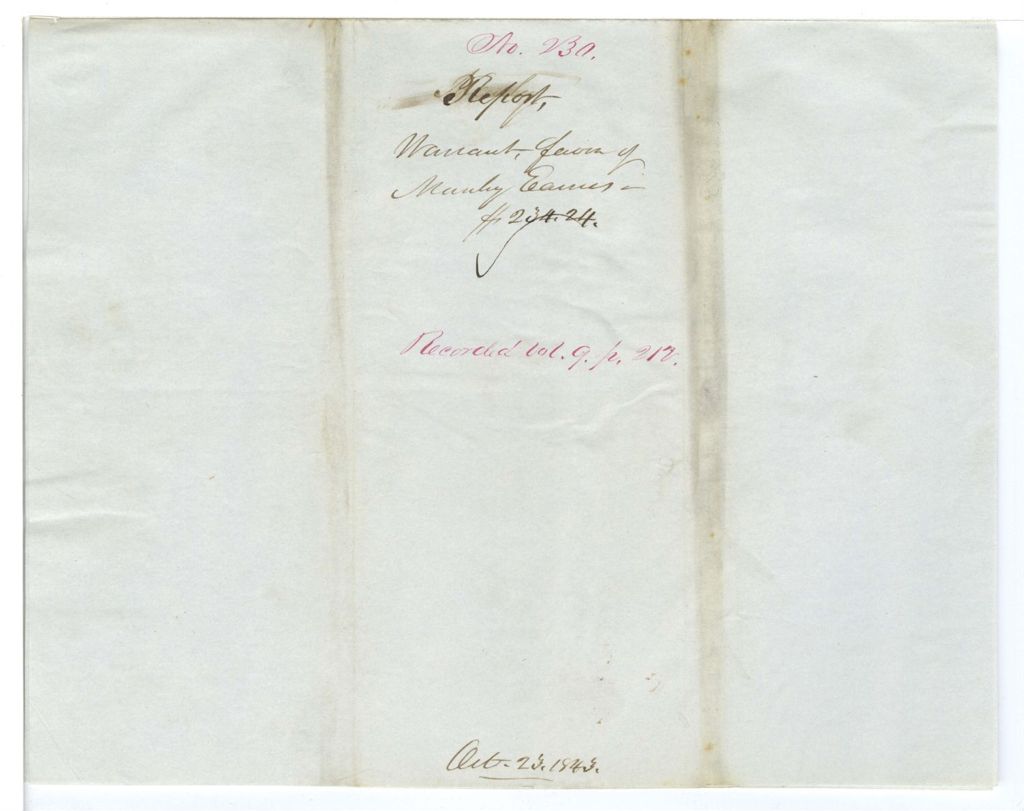 No. 230.
Report,
Warrant, favor of
Manly Eames –
$ 234.24.
Recorded vol. 9. p. 212.
Oct. 23. 1843.